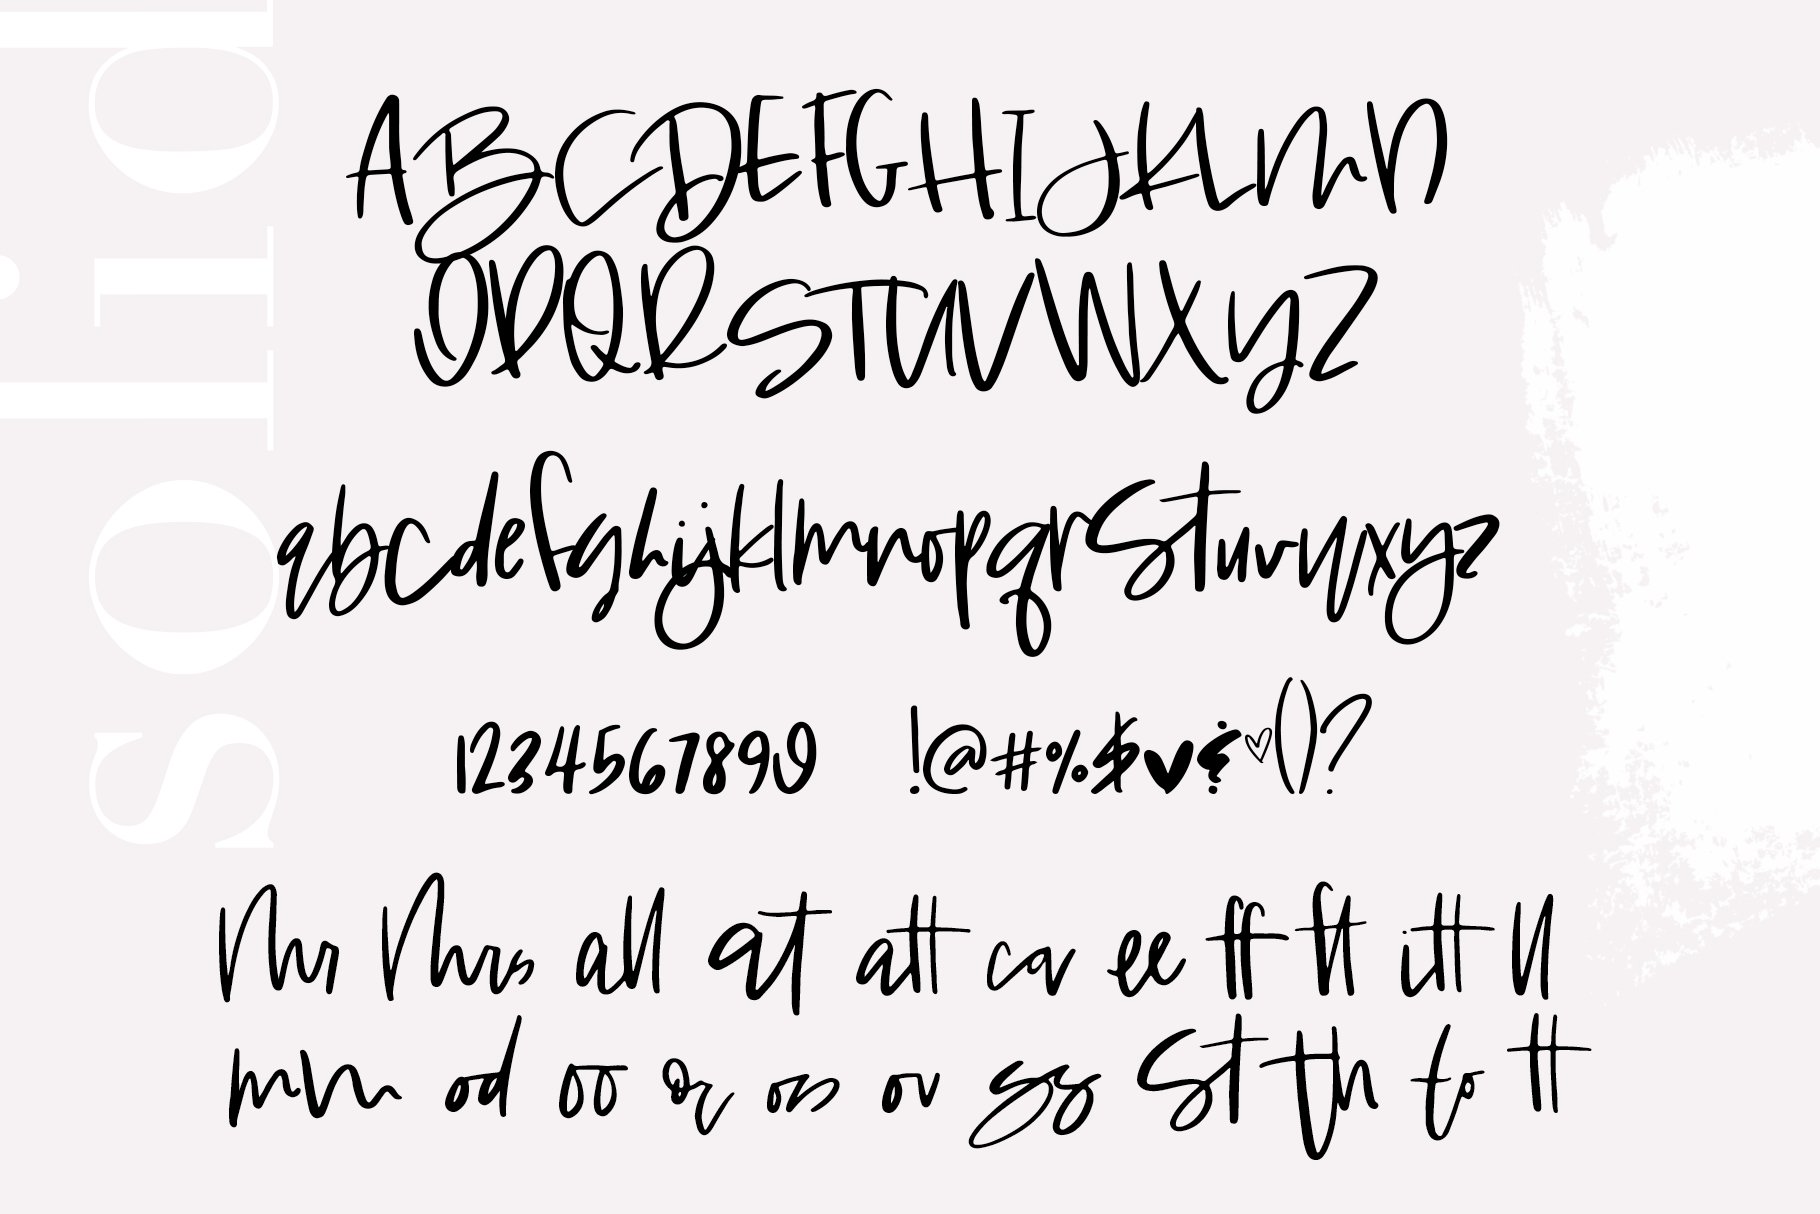 solid
ABCDEFGHIJKLMN
OPQRSTUVWXYZ
abcdefghijklmnopqrstuvwxyz
1234567890 !@#%$♥&♡()?
Mr Mrs all at att ca ee ff ft itt ll
mm od oo or os ov ss st th to tt